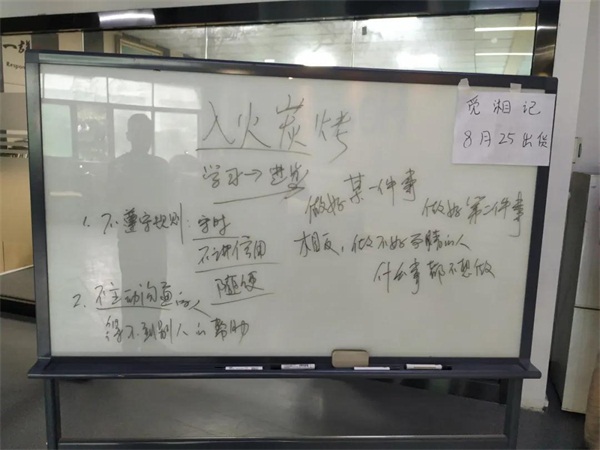 入火炭烤
觅湘记
8月25出货
学习→进步
做好某一件事
做好第二件事
1. 不遵守规则:守时
不讲信用
随便
相反,做不好事情的人
什么事都不想做
2. 不主动沟通的人
得不到别人的帮助